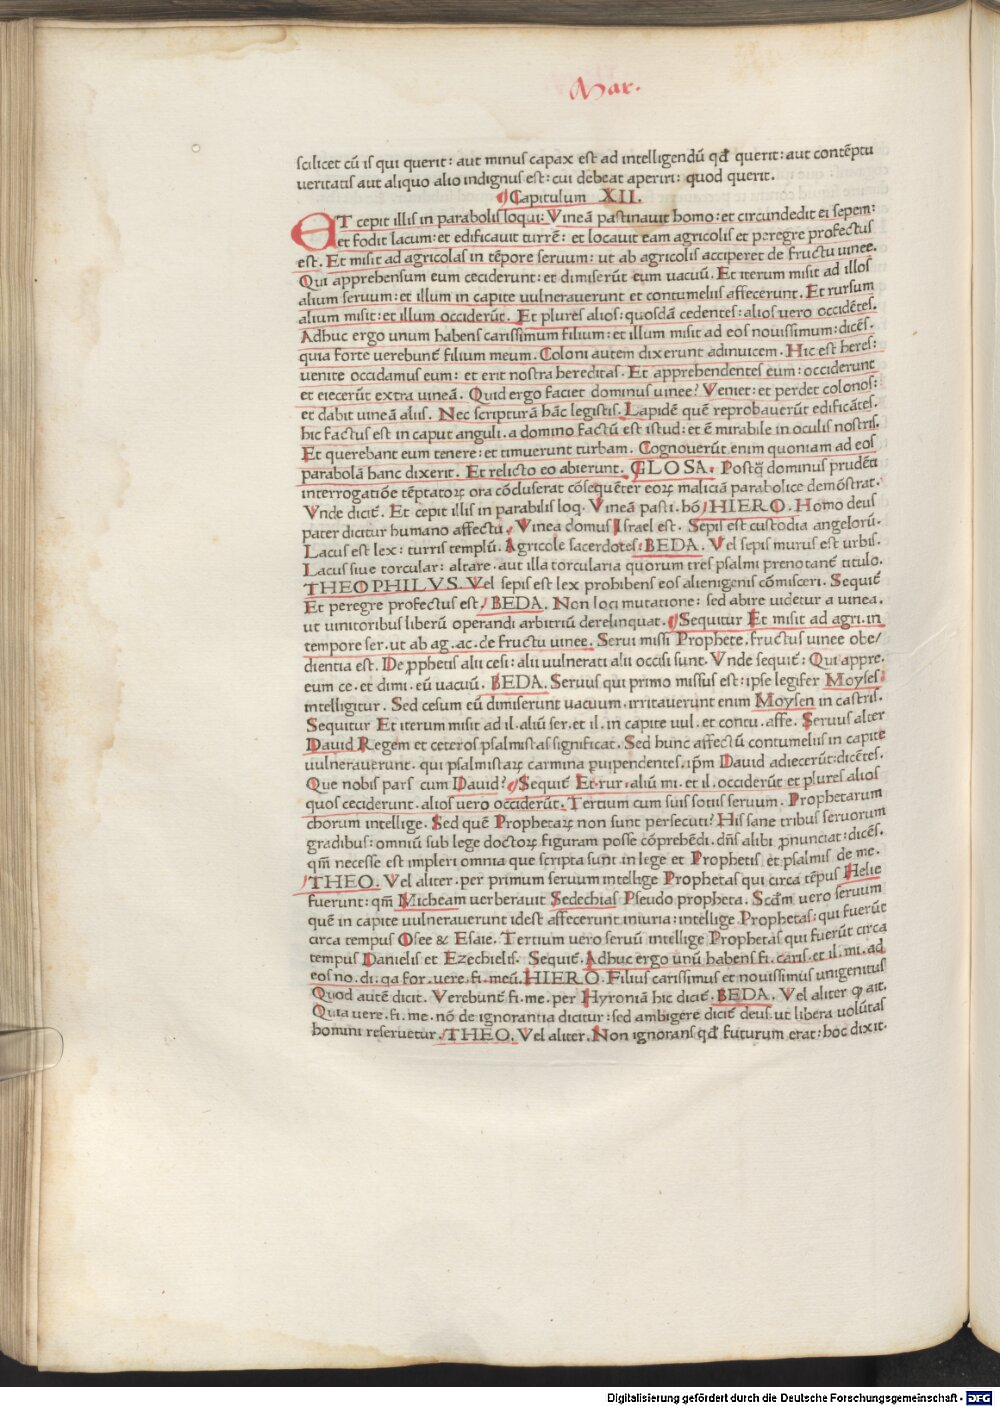 Mar.
scilicet cū is qui querit: aut minus capax est ad intelligendū qđ querit: aut contēptu
ueritatis aut aliquo alio indignus est: cui debeat aperiri: quod querit.
Capitulum XII.
ET cepit illis in parabolis loqui: Vineā pastinauit homo: et circundedit ei sepem:
et fodit lacum: et edificauit turrē: et locauit eam agricolis et peregre profectus
est. Et misit ad agricolas in tēpore seruum: ut ab agricolis acciperet de fructu uinee.
Qui apprehensum eum ceciderunt: et dimiserūt eum uacuū. Et iterum misit ad illos
alium seruum: et illum in capite uulnerauerunt et contumeliis affecerunt. Et rursum
alium misit: et illum occiderūt. Et plures alios: quosdā cedentes: alios uero occidētes.
Adhuc ergo unum habens carissimum filium: et illum misit ad eos nouissimum: dicēs.
quia forte uerebunt̄ filium meum. Coloni autem dixerunt adinuicem. Hic est heres:
uenite occidamus eum: et erit nostra hereditas. Et apprehendentes eum: occiderunt
et eiecerūt extra uineā. Quid ergo faciet dominus uinee? Veniet: et perdet colonos:
et dabit uineā aliis. Nec scripturā hāc legistis. Lapidē quē reprobauerūt edificātes.
hic factus est in caput anguli. a domino factū est istud: et ē mirabile in oculis nostris.
Et querebant eum tenere: et timuerunt turbam. Cognouerūt enim quoniam ad eos
parabolā hanc dixerit. Et relicto eo abierunt. GLOSA. Postq̄ dominus prudēti
interrogatiōe tēptatoꝝ ora cōcluserat cōsequēter eoꝝ maliciā parabolice demōstrat.
Vnde dicit̄. Et cepit illis in parabilis loq. Vineā pasti. hō HIERO. Homo deus
pater dicitur humano affectu. Vinea domus Israel est. Sepis est custodia angelorū.
Lacus est lex: turris templū. Agricole sacerdotes: BEDA. Vel sepis murus est urbis.
Lacus siue torcular: altare. aut illa torcularia quorum tres psalmi prenotant̄ titulo.
THEOPHILVS. Vel sepis est lex prohibens eos alienigenis cōmisceri. Sequit̄
Et peregre profectus est. BEDA. Non loci mutatione: sed abire uidetur a uinea.
ut uinitoribus liberū operandi arbitriū derelinquat. Sequitur Et misit ad agri. in
tempore ser. ut ab ag. ac. de fructu uinee. Serui missi Prophete. fructus uinee obe/
dientia est. De ꝓphetis alii cesi: alii uulnerati alii occisi sunt. Vnde sequit̄: Qui appre.
eum ce. et dimi. eū uacuū. BEDA. Seruus qui primo missus est: ipse legifer Moyses
intelligitur. Sed cesum eū dimiserunt uacuum. irritauerunt enim Moysen in castris.
Sequitur Et iterum misit ad il. aliū ser. et il. in capite uul. et contu. affe. Seruus alter
Dauid Regem et ceteros psalmistas significat. Sed hunc affectū contumeliis in capite
uulnerauerunt. qui psalmistaꝝ carmina ꝑuipendentes. ip̄m Dauid adiecerūt: dicētes.
Que nobis pars cum Dauid? Sequit̄ Et rur. aliū mi. et il. occiderūt et plures alios
quos ceciderunt. alios uero occiderūt. Tertium cum suis sotiis seruum. Prophetarum
chorum intellige. Sed quē Prophetaꝝ non sunt persecuti? His sane tribus seruorum
gradibus: omniū sub lege doctoꝝ figuram posse cōprehēdi. dn̄s alibi ꝓnunciat: dicēs.
qm̄ necesse est impleri omnia que scripta sunt in lege et Prophetis et psalmis de me.
THEO. Vel aliter. per primum seruum intellige Prophetas qui circa tēpus Helie
fuerunt: qm̄ Micheam uerberauit Sedechias Pseudo propheta. Scđm uero seruum
quē in capite uulnerauerunt idest affecerunt iniuria: intellige Prophetas: qui fuerūt
circa tempus Osee & Esaie. Tertium uero seruū intellige Prophetas qui fuerūt circa
tempus Danielis et Ezechielis. Sequit̄. Adhuc ergo unū habens fi. caris. et il. mi. ad
eos no. di. qa for. uere. fi. meū. HIERO. Filius carissimus et nouissimus unigenitus
Quod autē dicit. Verebunt̄ fi. me. per Hyroniā hic dicit̄. BEDA. Vel aliter ꝙ ait.
Quia uere. fi. me. nō de ignorantia dicitur: sed ambigere dicit̄ deus. ut libera uolūtas
homini reseruetur. THEO. Vel aliter. Non ignorans qđ futurum erat: hoc dixit.
Digitalisierung gefördert durch die Deutsche Forschungsgemeinschaft - DFG